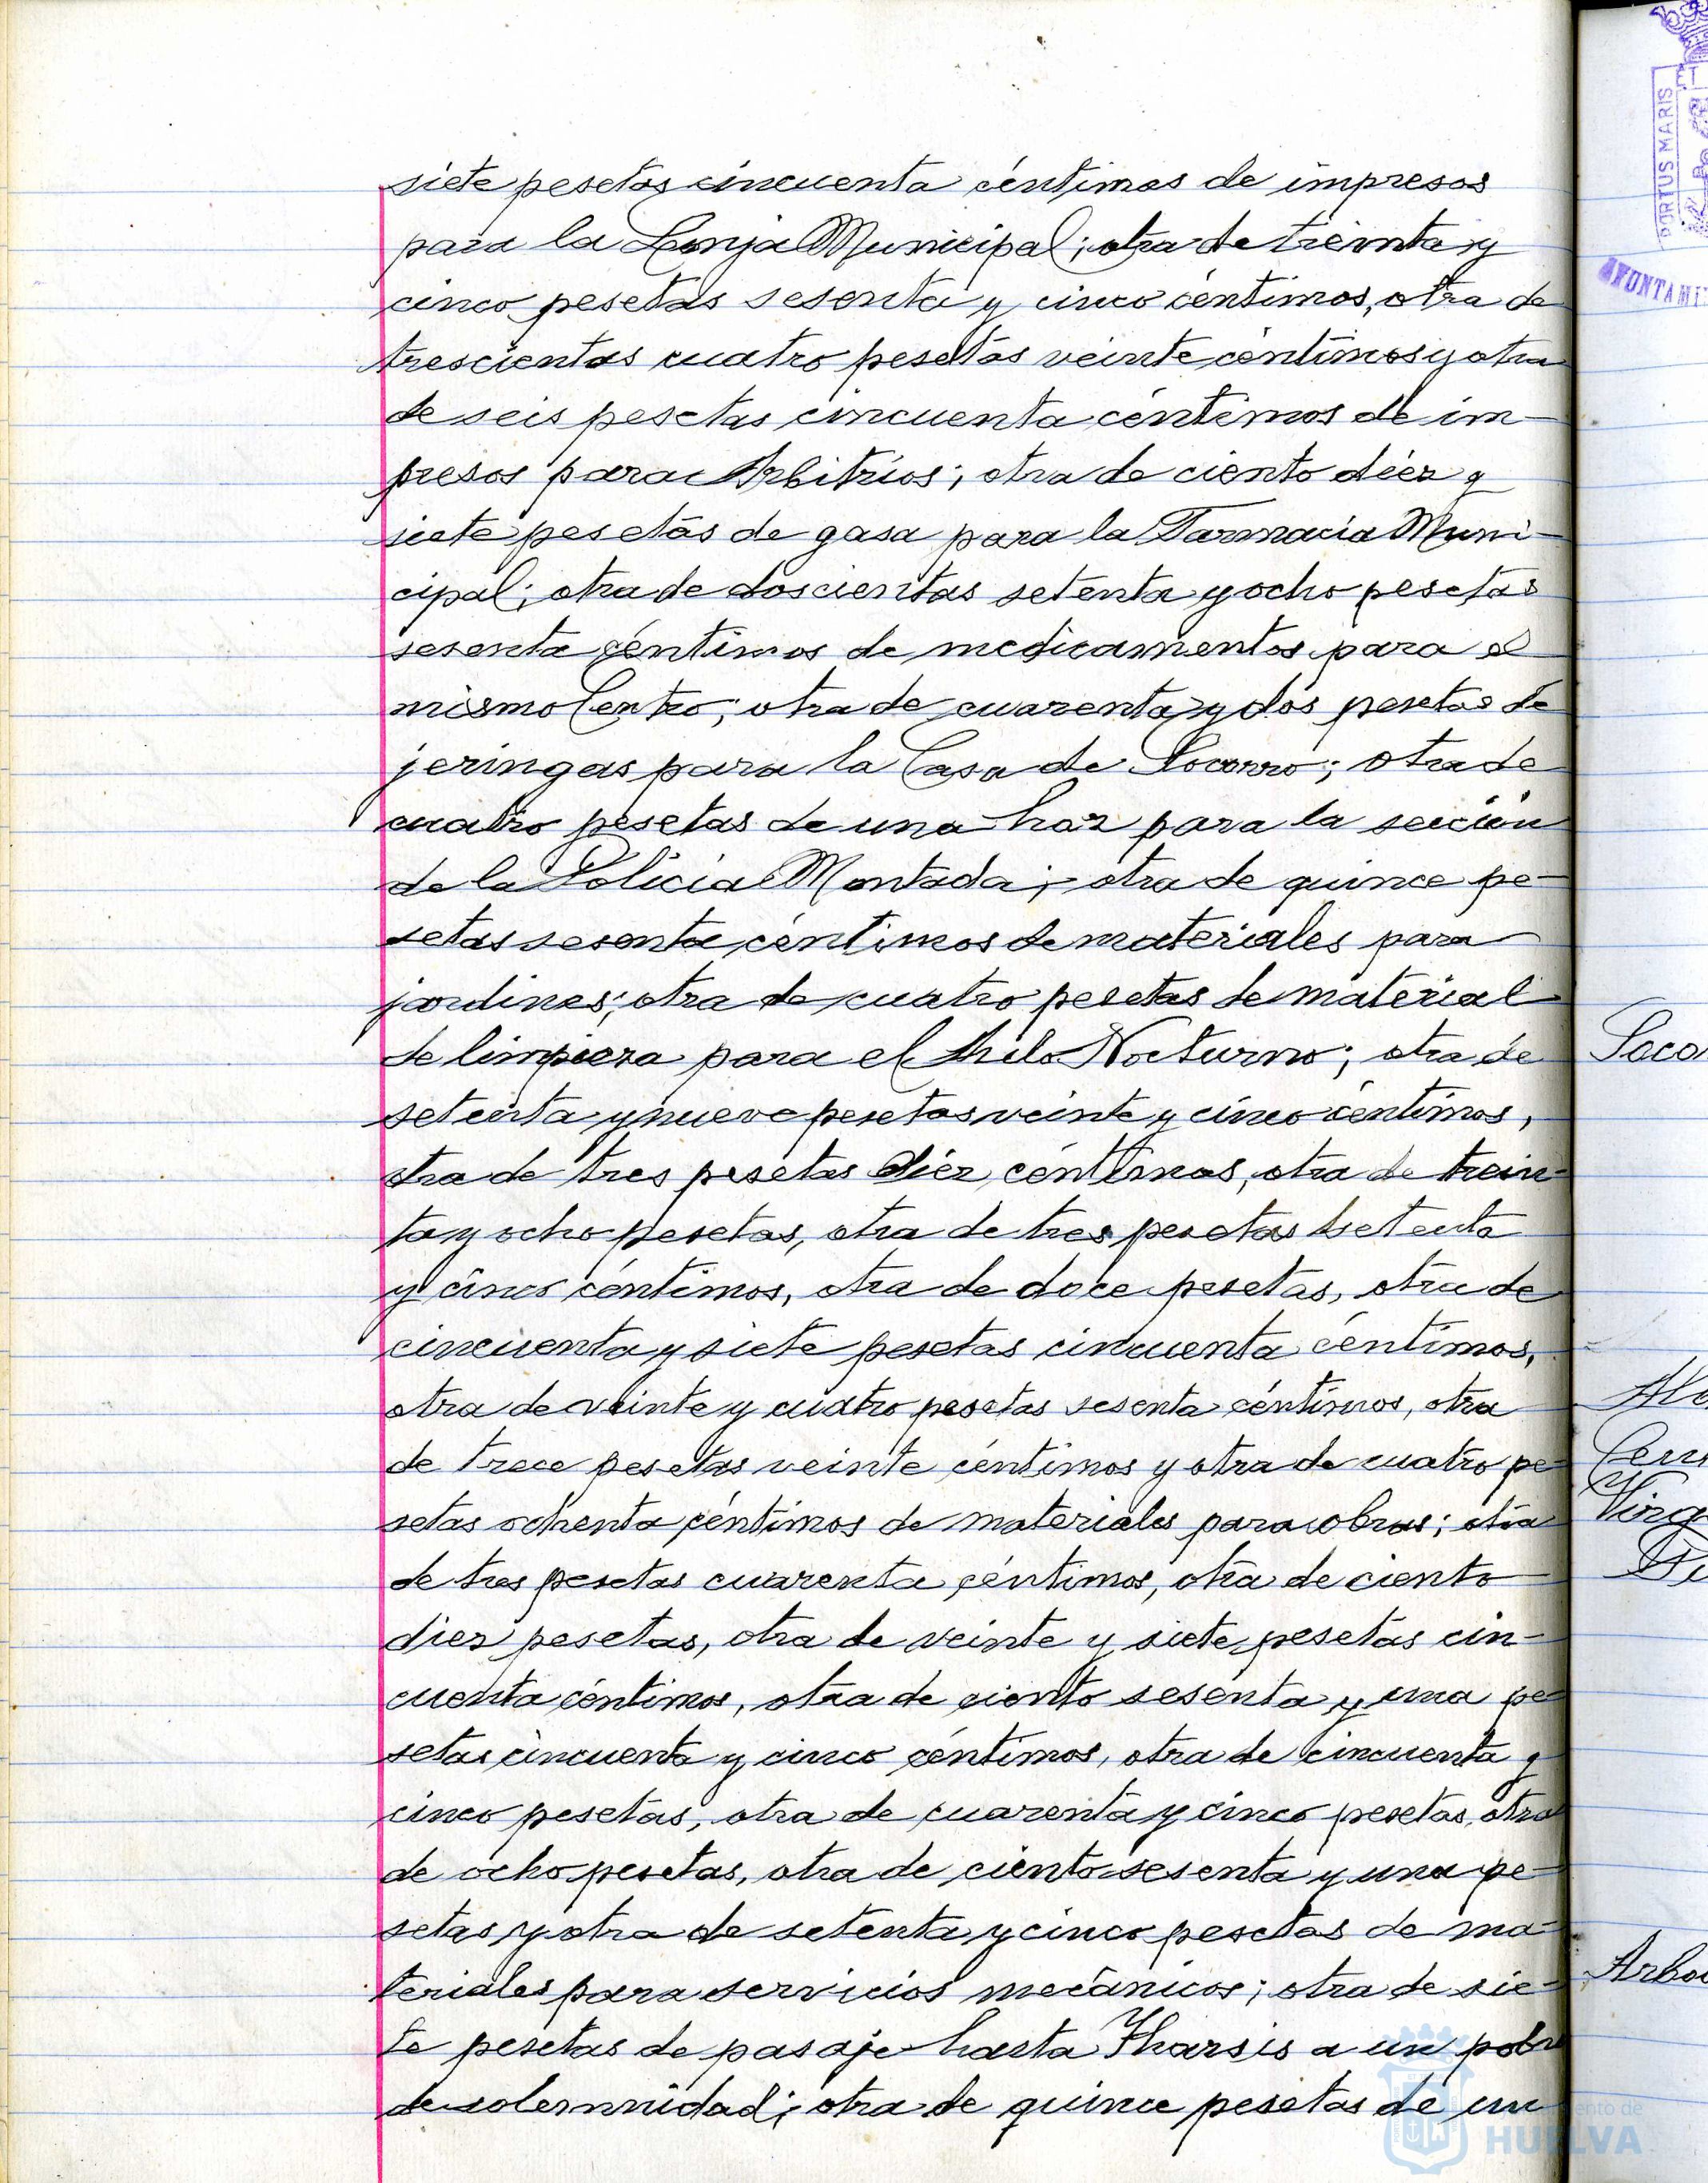 siete pesetas cincuenta céntimos de impresos
para la Lonja Municipal; otra de treinta y
cinco pesetas sesenta y cinco céntimos, otra de
trescientas cuatro pesetas veinte céntimos y otra
de seis pesetas cincuenta céntimos de im-
presos para Arbitrios; otra de ciento diez y
siete pesetas de gasa para la Farmacia Muni-
cipal; otra de doscientas setenta y ocho pesetas
sesenta céntimos de medicamentos para el
mismo Centro; otra de cuarenta y dos pesetas de
jeringas para la Casa de Socorro; otra de
cuatro pesetas de una hoz para la sección
de la Policía Montada; otra de quince pe-
setas sesenta céntimos de materiales para
jardines; otra de cuatro pesetas de material
de limpieza para el Asilo Nocturno; otra de
setenta y nueve pesetas veinte y cinco céntimos,
otra de tres pesetas diez céntimos, otra de trein-
ta y ocho pesetas, otra de tres pesetas setenta
y cinco céntimos, otra de doce pesetas, otra de
cincuenta y siete pesetas cincuenta céntimos,
otra de veinte y cuatro pesetas sesenta céntimos, otra
de trece pesetas veinte céntimos y otra de cuatro pe-
setas ochenta céntimos de materiales para obras; otra
de tres pesetas cuarenta céntimos, otra de ciento
diez pesetas, otra de veinte y siete pesetas cin-
cuenta céntimos, otra de ciento sesenta y una pe-
setas cincuenta y cinco céntimos, otra de cincuenta y
cinco pesetas, otra de cuarenta y cinco pesetas, otra
de ocho pesetas, otra de ciento sesenta y una pe-
setas y otra de setenta y cinco pesetas de ma-
teriales para servicios mecánicos; otra de sie-
te pesetas de pasaje hasta Tharsis a un pobre
de solemnidad; otra de quince pesetas de un
PORTUS MARIS ET
AYUNTAMI
Soco
Arbo
HUELVA